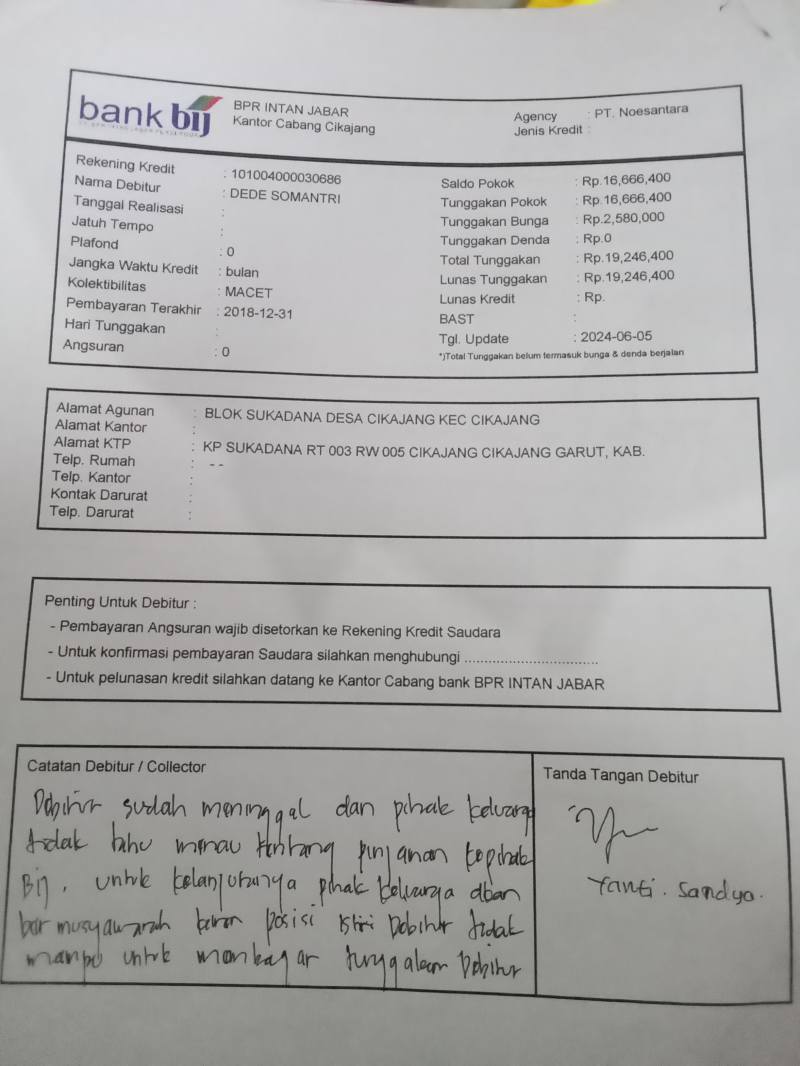 bank bij
BPR INTAN JABAR
Kantor Cabang Cikajang
Agency : PT. Noesantara
Jenis Kredit :
Rekening Kredit : 101004000030686
Nama Debitur : DEDE SOMANTRI
Tanggal Realisasi :
Jatuh Tempo :
Plafond : 0
Jangka Waktu Kredit : bulan
Kolektibilitas : MACET
Pembayaran Terakhir : 2018-12-31
Hari Tunggakan :
Angsuran : 0
Saldo Pokok : Rp.16,666,400
Tunggakan Pokok : Rp.16,666,400
Tunggakan Bunga : Rp.2,580,000
Tunggakan Denda : Rp.0
Total Tunggakan : Rp.19,246,400
Lunas Tunggakan : Rp.19,246,400
Lunas Kredit : Rp.
BAST :
Tgl. Update : 2024-06-05
*)Total Tunggakan belum termasuk bunga & denda berjalan
Alamat Agunan : BLOK SUKADANA DESA CIKAJANG KEC CIKAJANG
Alamat Kantor :
Alamat KTP : KP SUKADANA RT 003 RW 005 CIKAJANG CIKAJANG GARUT, KAB.
Telp. Rumah : - -
Telp. Kantor :
Kontak Darurat :
Telp. Darurat :
Penting Untuk Debitur :
- Pembayaran Angsuran wajib disetorkan ke Rekening Kredit Saudara
- Untuk konfirmasi pembayaran Saudara silahkan menghubungi ..................................
- Untuk pelunasan kredit silahkan datang ke Kantor Cabang bank BPR INTAN JABAR
Catatan Debitur / Collector
Debitur sudah meninggal dan pihak keluarga
tidak tahu menau tentang pinjaman kepihak
Bij, untuk kelanjutanya pihak keluarga akan
bermusyawarah karena posisi istri Debitur tidak
mampu untuk membayar tunggakan Debitur
Tanda Tangan Debitur
Yanti. Sandya.